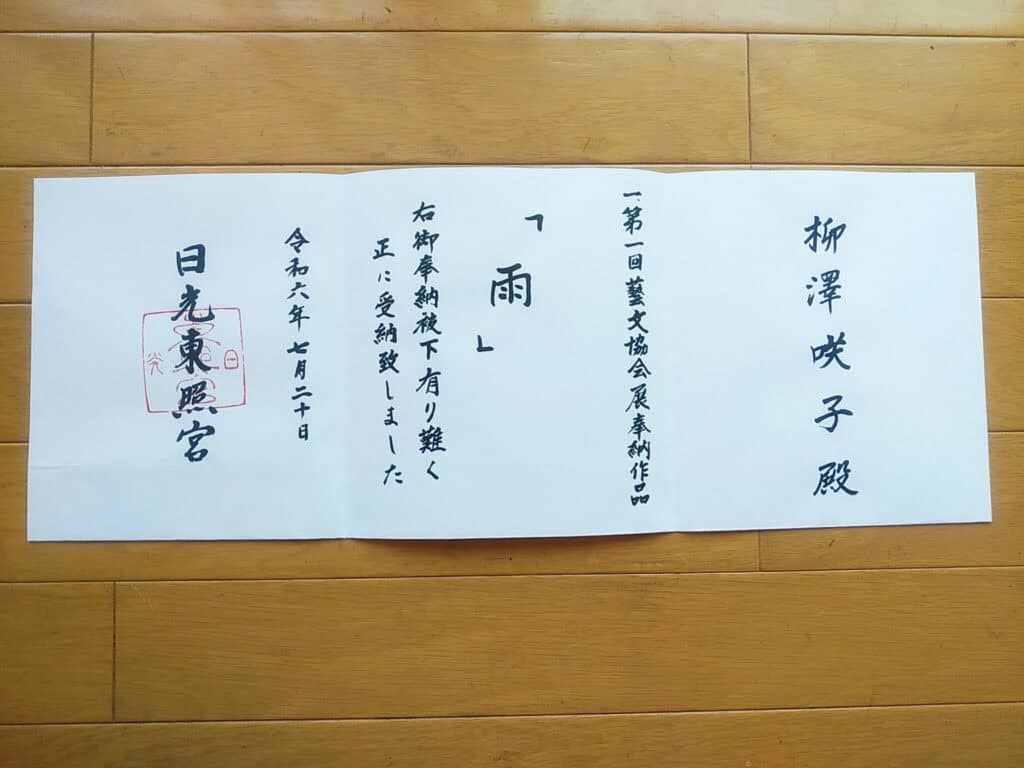 柳澤咲子殿
一、第一回藝文協会展奉納作品
「雨」
右御奉納被下有り難く
正に受納致しました
令和六年七月二十日
日光東照宮